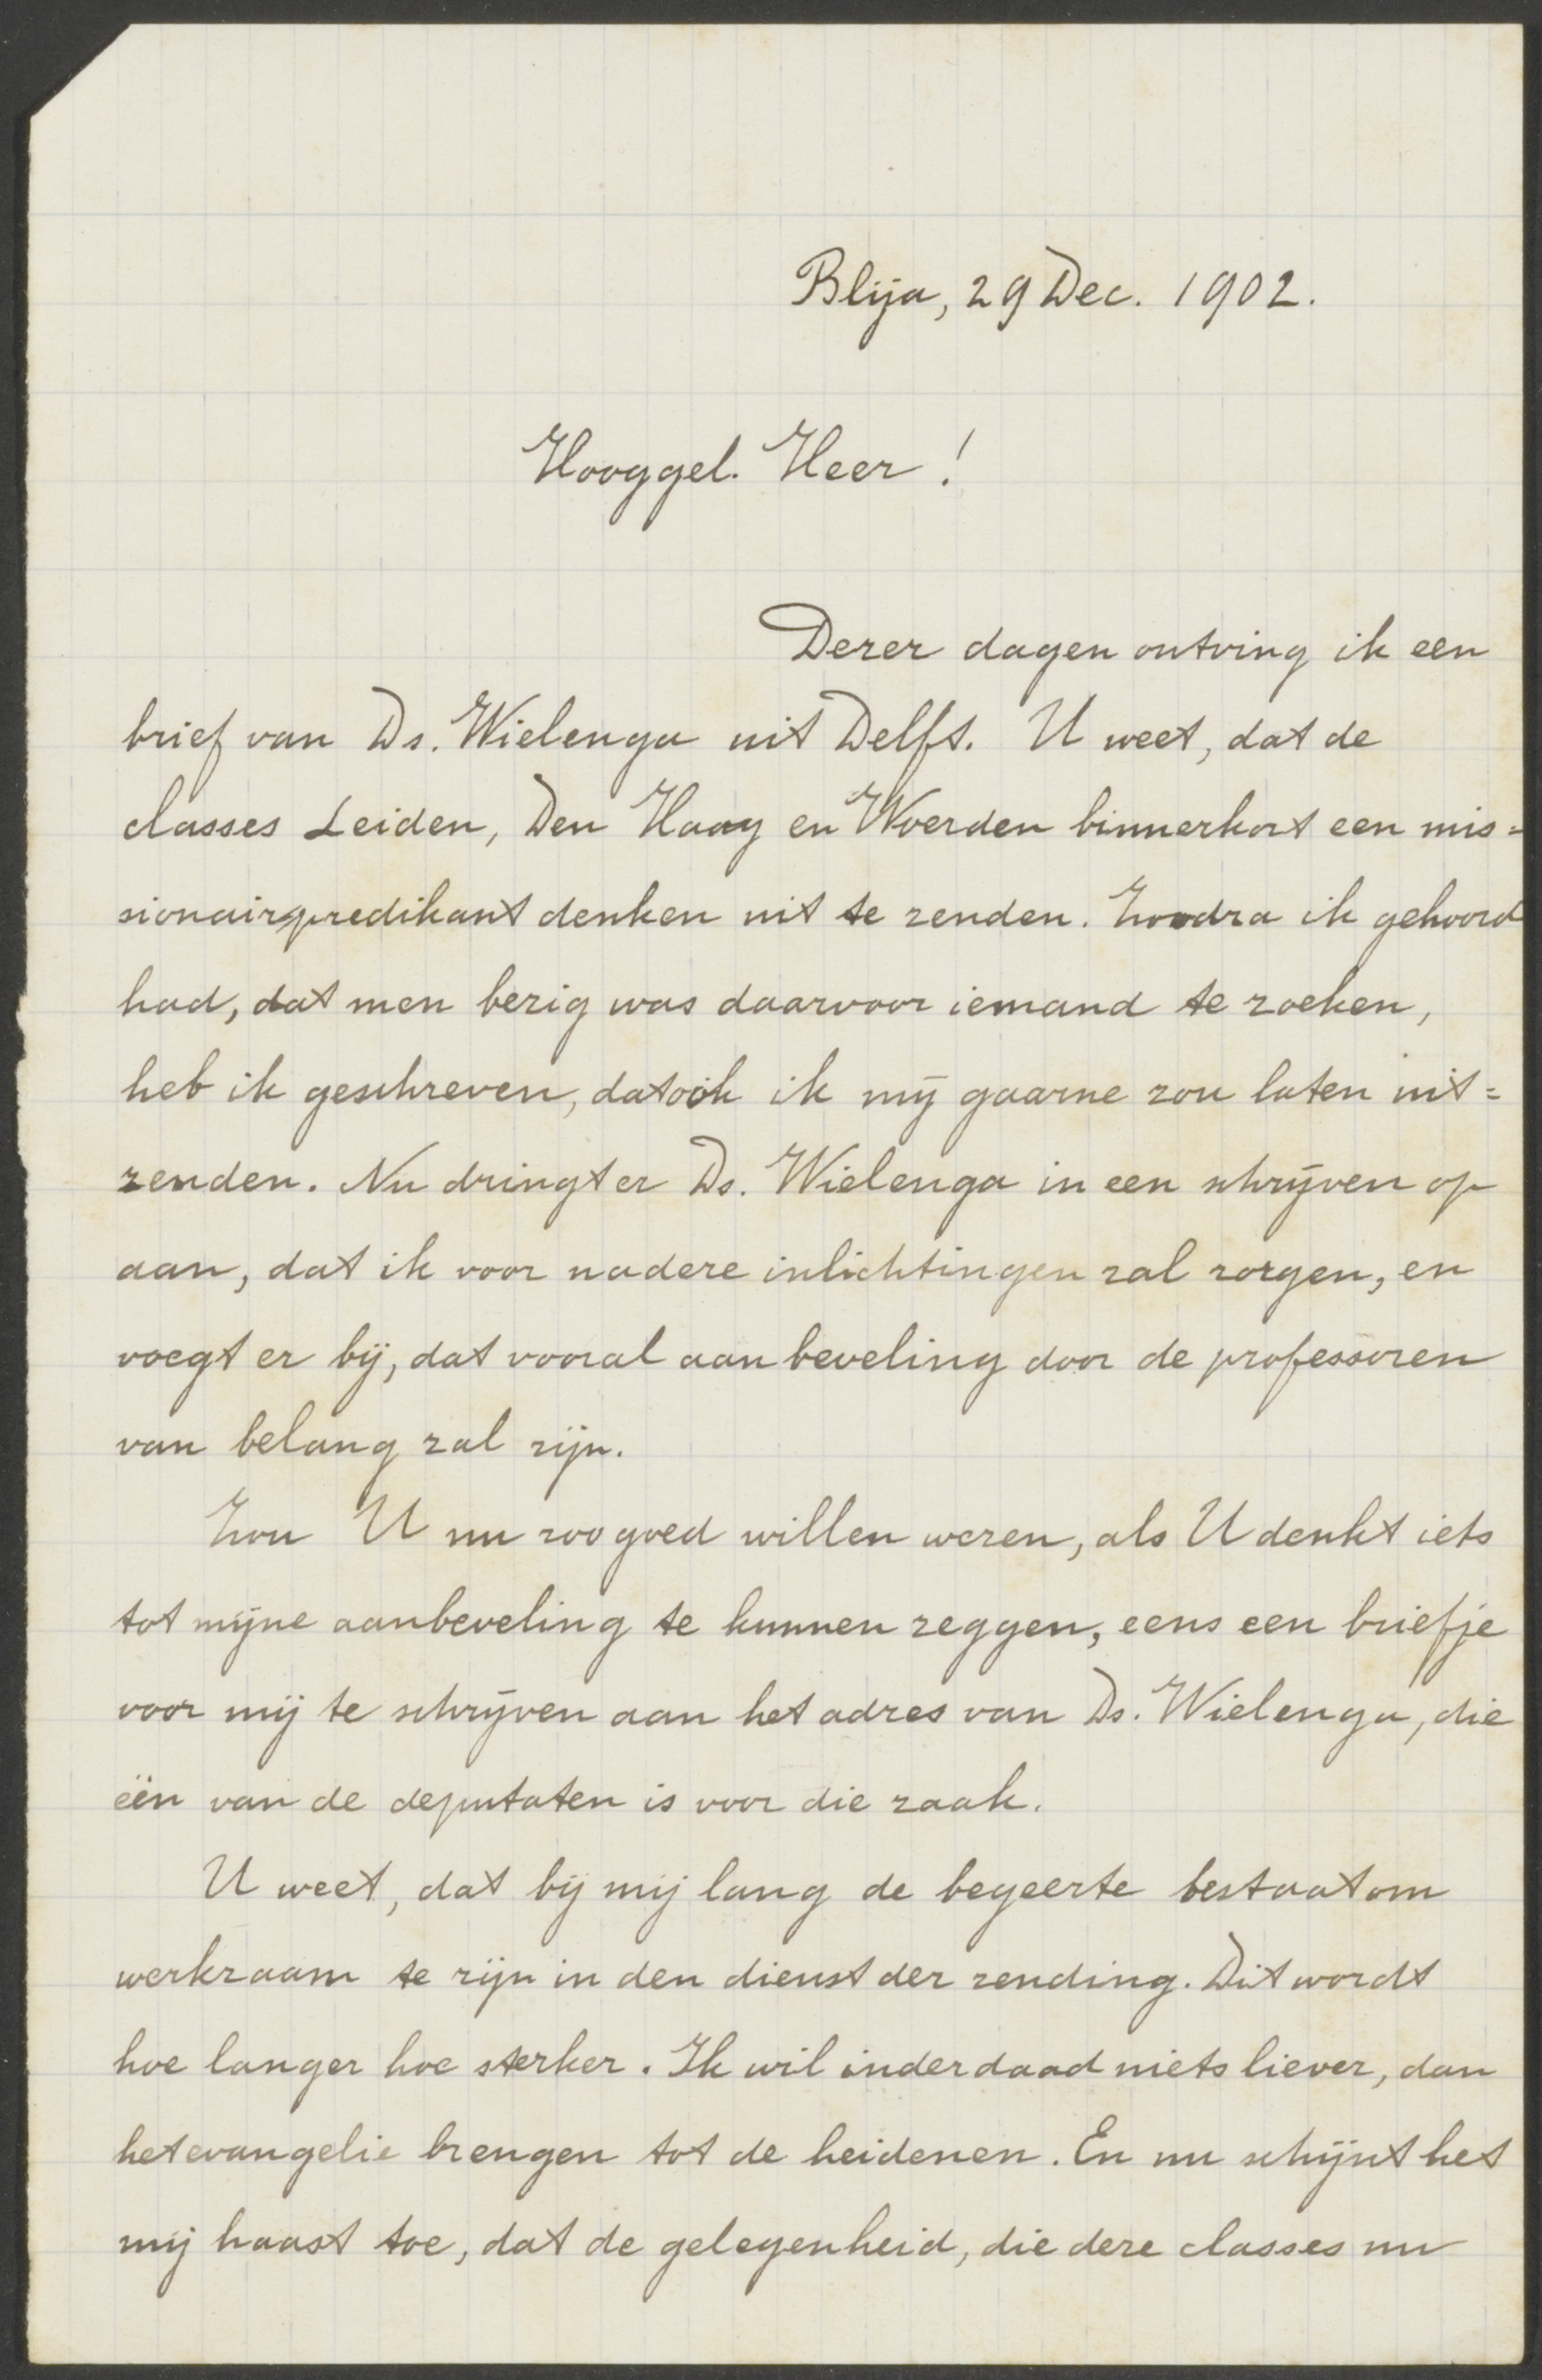 Blija, 29 Dec. 1902.
Hooggel. Heer!
Dezer dagen ontving ik een
brief van Ds. Wielenga uit Delft. U weet, dat de
classes Leiden, Den Haag en Woerden binnenkort een mis=
sionairpredikant denken uit te zenden. Zoodra ik gehoord
had, dat men bezig was daarvoor iemand te zoeken,
heb ik geschreven, dat ook ik mij gaarne zou laten uit=
zenden. Nu dringt er Ds. Wielenga in een schrijven op
aan, dat ik voor nadere inlichtingen zal zorgen, en
voegt er bij, dat vooral aanbeveling door de professoren
van belang zal zijn.
Zou U nu zoo goed willen wezen, als U denkt iets
tot mijne aanbeveling te kunnen zeggen, eens een briefje
voor mij te schrijven aan het adres van Ds. Wielenga, die
één van de deputaten is voor die zaak.
U weet, dat bij mij lang de begeerte bestaat om
werkzaam te zijn in den dienst der zending. Dit wordt
hoe langer hoe sterker. Ik wil inderdaad niets liever, dan
het evangelie brengen tot de heidenen. En nu schijnt het
mij haast toe, dat de gelegenheid, die deze classes nu